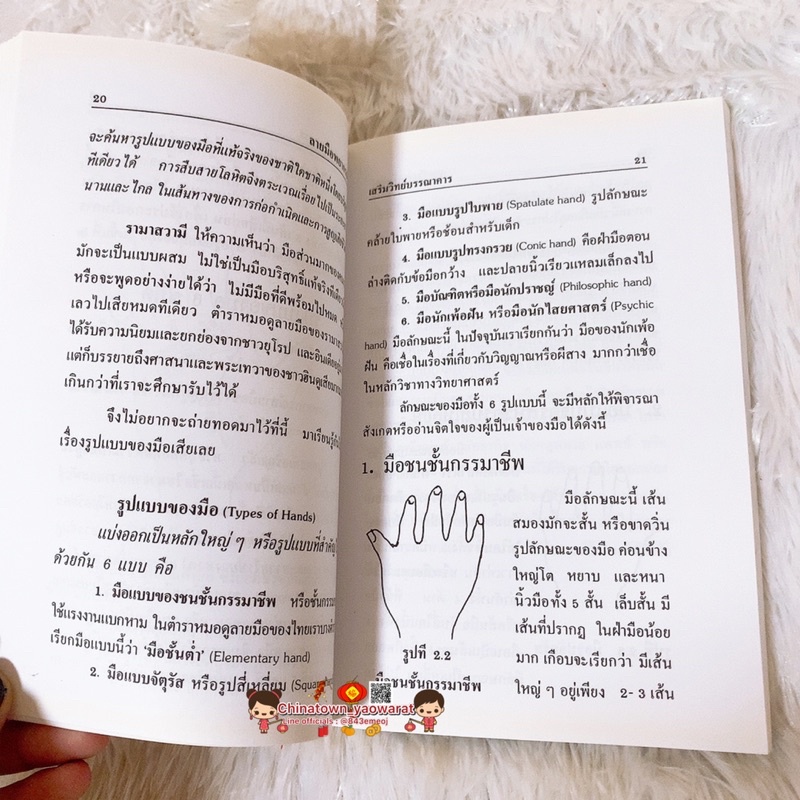 20
ลายมือพยา
จะค้นหารูปแบบของมือที่แท้จริงของชาติใดชาติหนึ่ง
ทีเดียวได้ การสืบสายโลหิตจึงตระเวณเรื่อยไปเป็น
นานและไกล ในเส้นทางของการก่อกำเนิดและการสูญ
รามาสวามี ให้ความเห็นว่า มือส่วนมากของ
มักจะเป็นแบบผสม ไม่ใช่เป็นมือบริสุทธิ์แท้จริงทีเดียว
หรือจะพูดอย่างง่ายได้ว่า ไม่มีมือที่ดีพร้อมไปหมด
เลวไปเสียหมดทีเดียว ตำราหมอดูลายมือของรามา
ได้รับความนิยมและยกย่องจากชาวยุโรป และอินเดีย
แต่ก็บรรยายถึงศาสนาและพระเทวาของชาวฮินดูเสีย
เกินกว่าที่เราจะศึกษารับไว้ได้
จึงไม่อยากจะถ่ายทอดมาไว้ที่นี้ มาเรียนรู้
เรื่องรูปแบบของมือเสียเลย
รูปแบบของมือ (Types of Hands)
แบ่งออกเป็นหลักใหญ่ ๆ หรือรูปแบบที่สำคัญ
ด้วยกัน 6 แบบ คือ
1. มือแบบของชนชั้นกรรมาชีพ หรือชั้นกรรม
ใช้แรงงานแบกหาม ในตำราหมอดูลายมือของไทยเราบาง
เรียกมือแบบนี้ว่า 'มือชั้นต่ำ' (Elementary hand)
2. มือแบบจัตุรัส หรือรูปสี่เหลี่ยม (Square
เสริมวิทย์บรรณาคาร
21
3. มือแบบรูปใบพาย (Spatulate hand) รูปลักษณะ
คล้ายใบพายหรือช้อนสำหรับเด็ก
4. มือแบบรูปทรงกรวย (Conic hand) คือฝ่ามือตอน
ล่างติดกับข้อมือกว้าง และปลายนิ้วเรียวแหลมเล็กลงไป
5. มือบัณฑิตหรือมือนักปราชญ์ (Philosophic hand)
6. มือนักเพ้อฝัน หรือมือนักไสยศาสตร์ (Psychic
hand) มือลักษณะนี้ ในปัจจุบันเราเรียกกันว่า มือของนักเพ้อ
ฝัน คือเชื่อในเรื่องที่เกี่ยวกับวิญญาณหรือผีสาง มากกว่าเชื่อ
ในหลักวิชาทางวิทยาศาสตร์
ลักษณะของมือทั้ง 6 รูปแบบนี้ จะมีหลักให้พิจารณา
สังเกตหรืออ่านจิตใจของผู้เป็นเจ้าของมือได้ดังนี้
1. มือชนชั้นกรรมาชีพ
มือลักษณะนี้ เส้น
สมองมักจะสั้น หรือขาดวิ่น
รูปลักษณะของมือ ค่อนข้าง
ใหญ่โต หยาบ และหนา
นิ้วมือทั้ง 5 สั้น เล็บสั้น มี
เส้นที่ปรากฏ ในฝ่ามือน้อย
มาก เกือบจะเรียกว่า มีเส้น
ใหญ่ ๆ อยู่เพียง 2 - 3 เส้น
รูปที่ 2.2
มือชนชั้นกรรมาชีพ
Chinatown_yaowarat
Line officials : @843emeoj